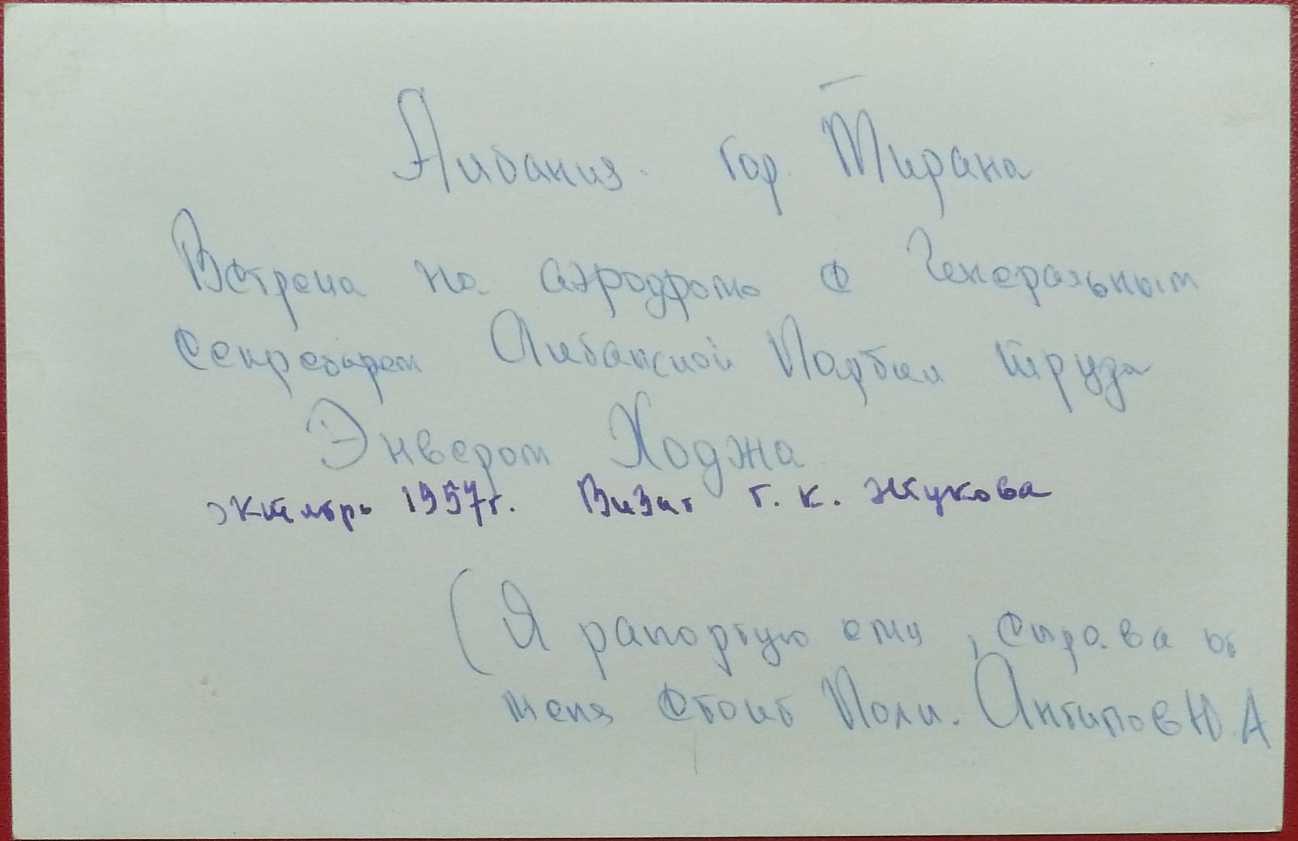 Албания. Гор. Тирана
Встреча на аэродроме с Генеральным
секретарем Албанской Партии труда
Энвером Ходжа
октябрь 1957г. Визит Г. К. Жукова
(Я рапортую ему, справа от
меня стоит Полк. Антипов Ю.А